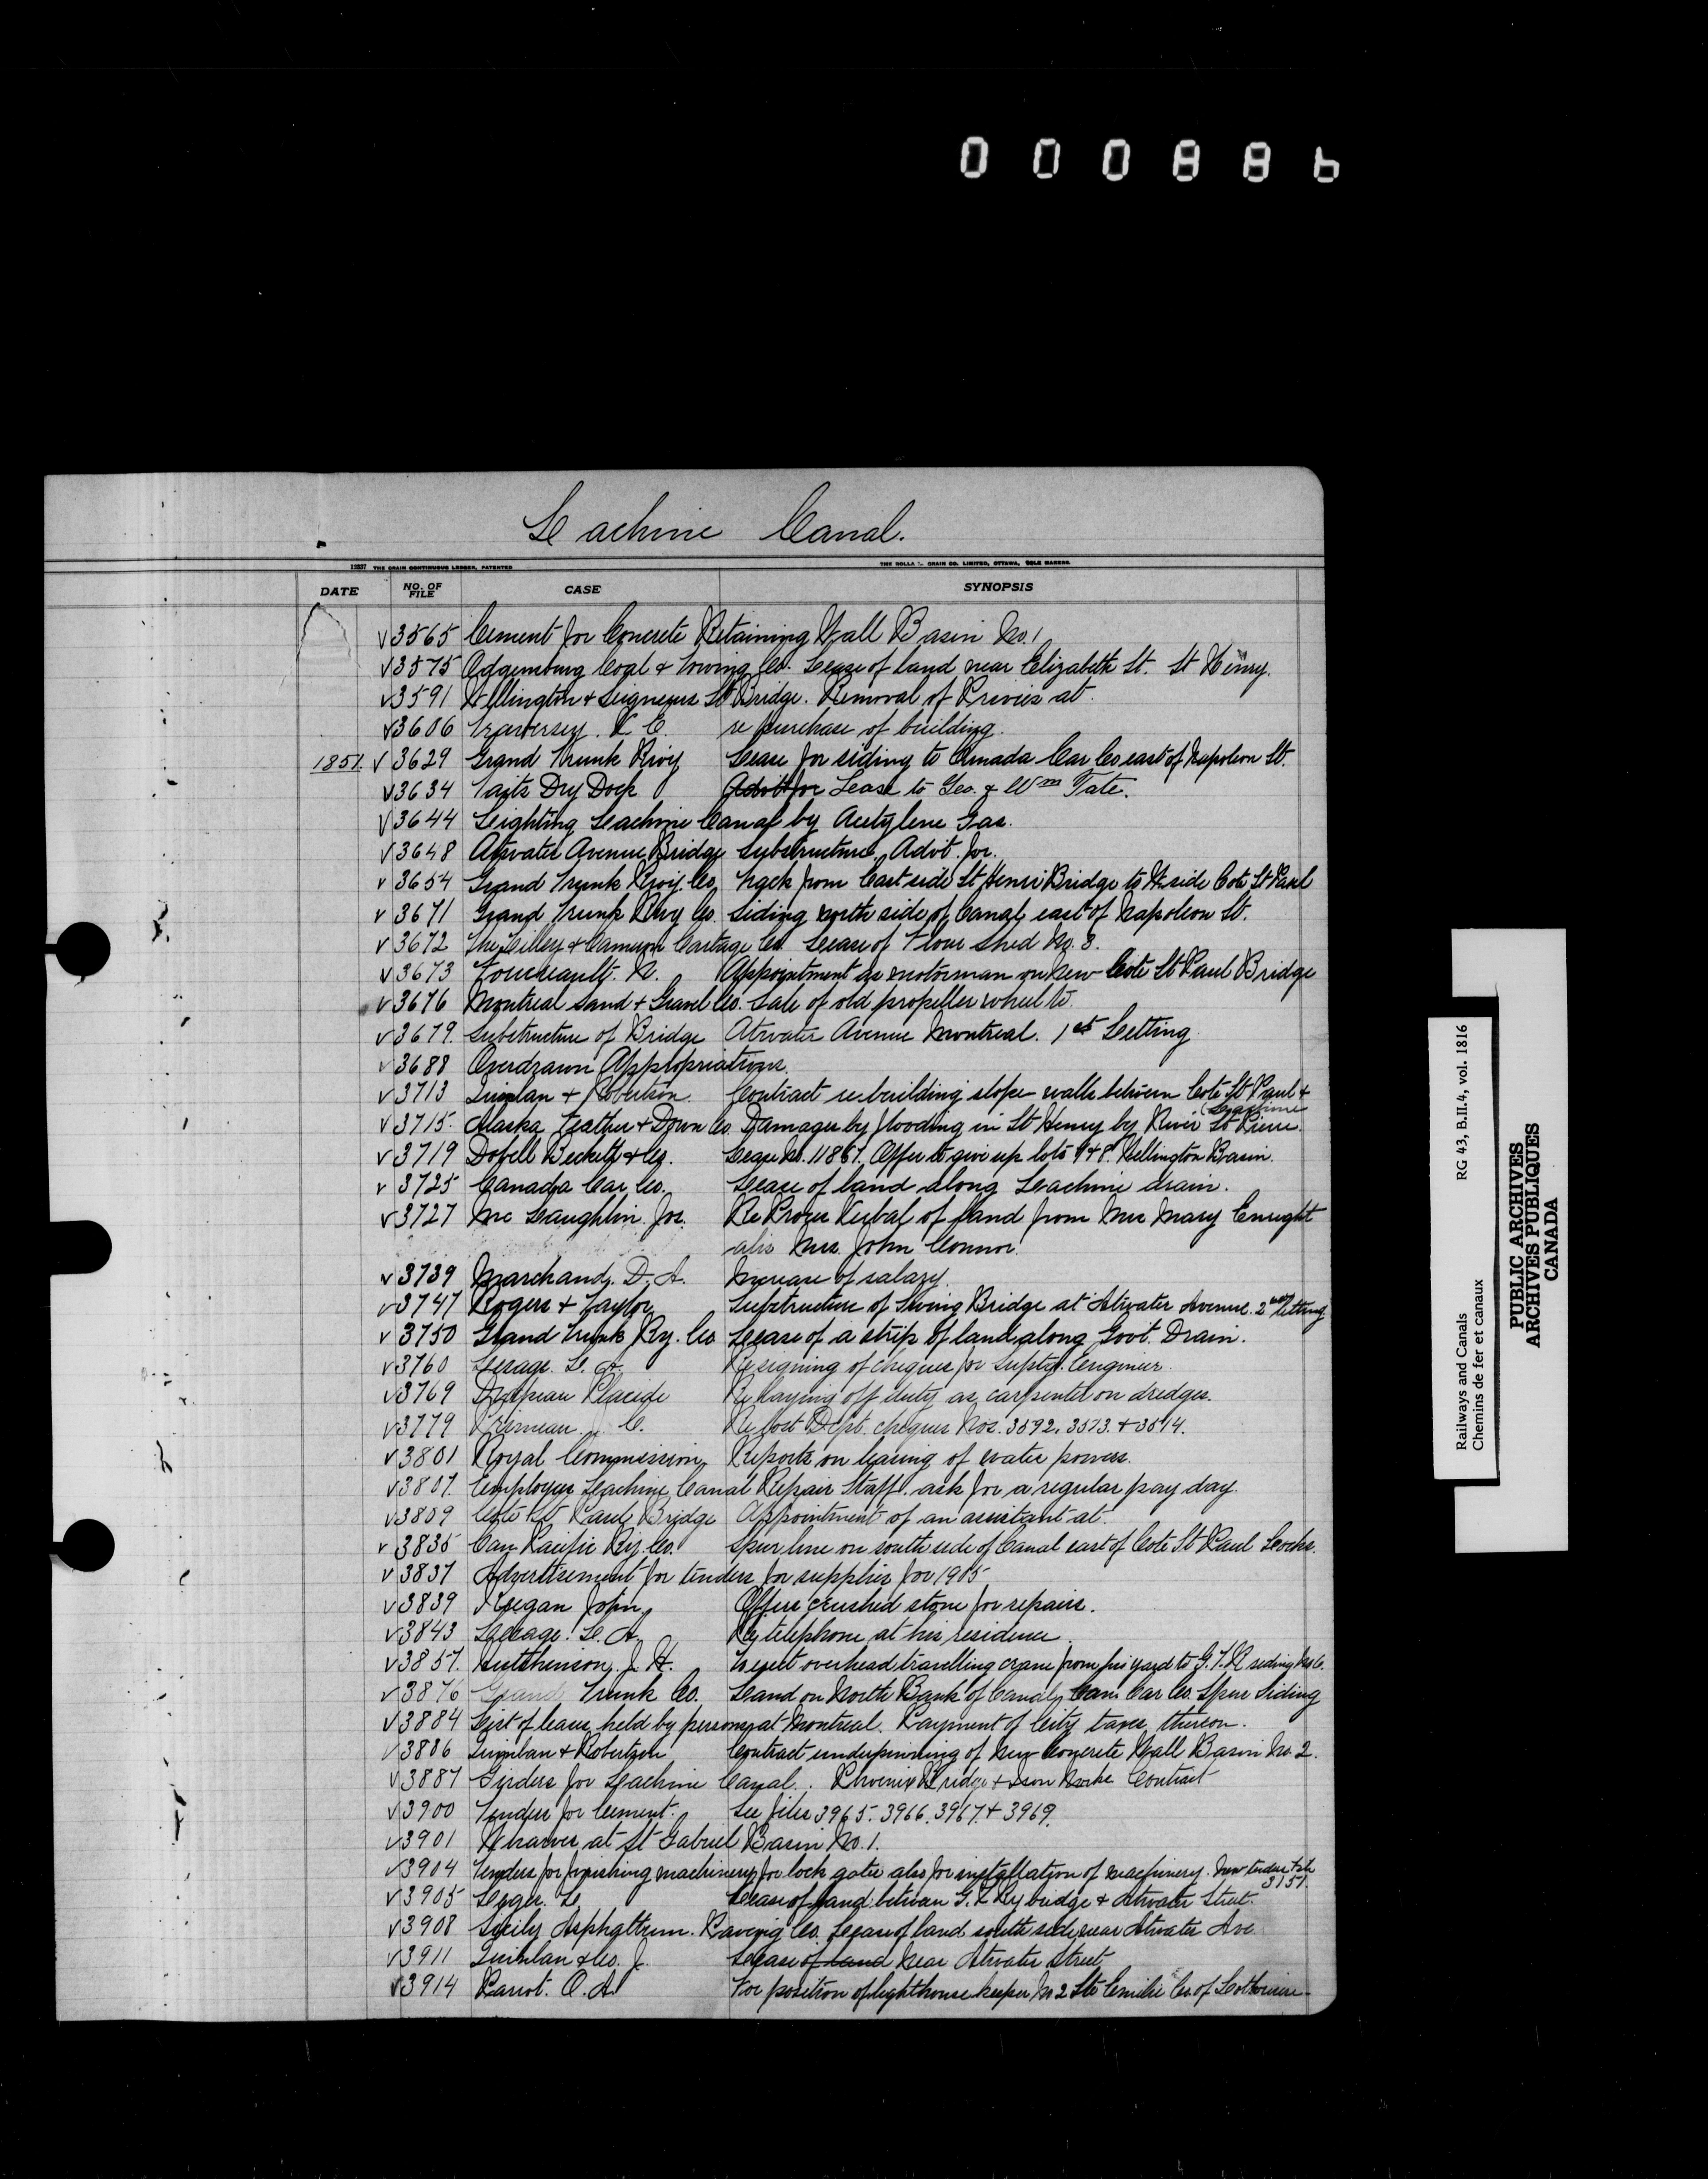 000886
Lachine Canal.
12337 THE CRAIN CONTINUOUS LEDGER, PATENTED
THE ROLLA L. CRAIN CO. LIMITED, OTTAWA, SOLE MAKERS.
DATE NO. OF FILE CASE SYNOPSIS
√3565 Cement for Concrete Retaining Wall Basin No. 1
√3575 Odgensburg Coal & Towing Co. Lease of land near Elizabeth St. St Henry.
√3591 Wellington & Seigneurs St Bridge. Removal of Privies at.
√3606 Traversey. X. E. re purchase of building.
1857. √3629 Grand Trunk Rwy Lease for siding to Canada Car Co east of Napoleon St.
√3634 Taits Dry Dock Advt for Lease to Geo. & Wm Tate.
√3644 Lighting Lachine Canal by Acetylene Gas.
√3648 Atwater Avenue Bridge Substructure, Advt. for.
√3654 Grand Trunk Rwy. Co. Track from East side St Henri Bridge to W. side Cote St Paul
√3671 Grand Trunk Rwy Co. Siding north side of Canal, east of Napoleon St.
√3672 The Lilley & Cameron Cartage Co. Lease of Flour Shed No. 8.
√3673 Fourneault. N. Appointment as motorman on New Cote St Paul Bridge
√3676 Montreal Sand & Gravel Co. Sale of old propeller wheel to.
√3679. Substructure of Bridge Atwater Avenue Montreal. 1st Letting
√3688 Overdrawn Appropriations.
√3713 Quinlan & Robertson. Contract re building slope walls between Cote St Paul &
(Lachine
√3715. Alaska Feather & Down Co. Damages by flooding in St Henry by River St Pierre.
√3719 Dobell Beckett & Co. Lease No. 11867. Offer to give up lots 7 & 8. Wellington Basin.
√3725 Canada Car Co. Lease of land along Lachine drain.
√3727 McLaughlin. Jos. Re Proces Verbal of land from Mrs Mary Enright
alis Mrs. John Connor.
√3739 Marchand. D. A. Increase of salary.
√3747 Rogers & Taylor Substructure of Swing Bridge at Atwater Avenue. 2nd letting
√3750 Grand Trunk Ry. Co. Lease of a strip of land along Govt. Drain.
√3760 Lesage. L. A. Re signing of cheques for Suptg. Engineer.
√3769 Drapeau Placide Re laying off duty as carpenter on dredges.
√3779 C. Re lost Dept. cheques Nos. 3592. 3573. & 3514.
√3801 Royal Commission, Reports on leasing of water powers.
√3807. Employees Lachine Canal Repair Staff. ask for a regular pay day.
√3809 Cote St. Paul Bridge Appointment of an assistant at.
√3835 Can Pacific Ry. Co. Spur line on south side of Canal east of Cote St Paul Locks.
√3837 Advertisement for tenders for supplies for 1905
√3839 Keegan John, Offers crushed stone for repairs.
√3843 Lesage. L. A. Re telephone at his residence
√3857. Hutchinson. J. H. To erect overhead travelling crane from his yard to G. T. R siding
√3876 Grand Trunk Co. Land on North Bank of Canal, Can. Car Co. Spur Siding
√3884 List of leases, held by persons at Montreal. Payment of City taxes thereon.
√3886 Quinlan & Robertson Contract underpinning of New Concrete Wall Basin No. 2.
√3887 Girders for Lachine Canal. Phoenix Bridge & Iron Works Contract
√3900 Tender for Cement. See files 3965. 3966. 3967. & 3969.
√3901 Wharves at St Gabriel Basin No. 1.
√3904 Tenders for furnishing machinery for lock gates also for installation of machinery. New tenders
3157.
√3905 Leger. L. Lease of land between G. T. Ry bridge & Atwater Street.
√3908 Sicily Asphaltum. Paving Co. Lease of land south side near Atwater Ave
√3911 Quinlan & Co. J. Lease of land Near Atwater Street
√3914 Parrot. O. A. For position of lighthouse keeper No 2 Ste Emilie Co. of Lotbiniere
Railways and Canals RG 43, B.II.4, vol. 1816
Chemins de fer et canaux
PUBLIC ARCHIVES
ARCHIVES PUBLIQUES
CANADA